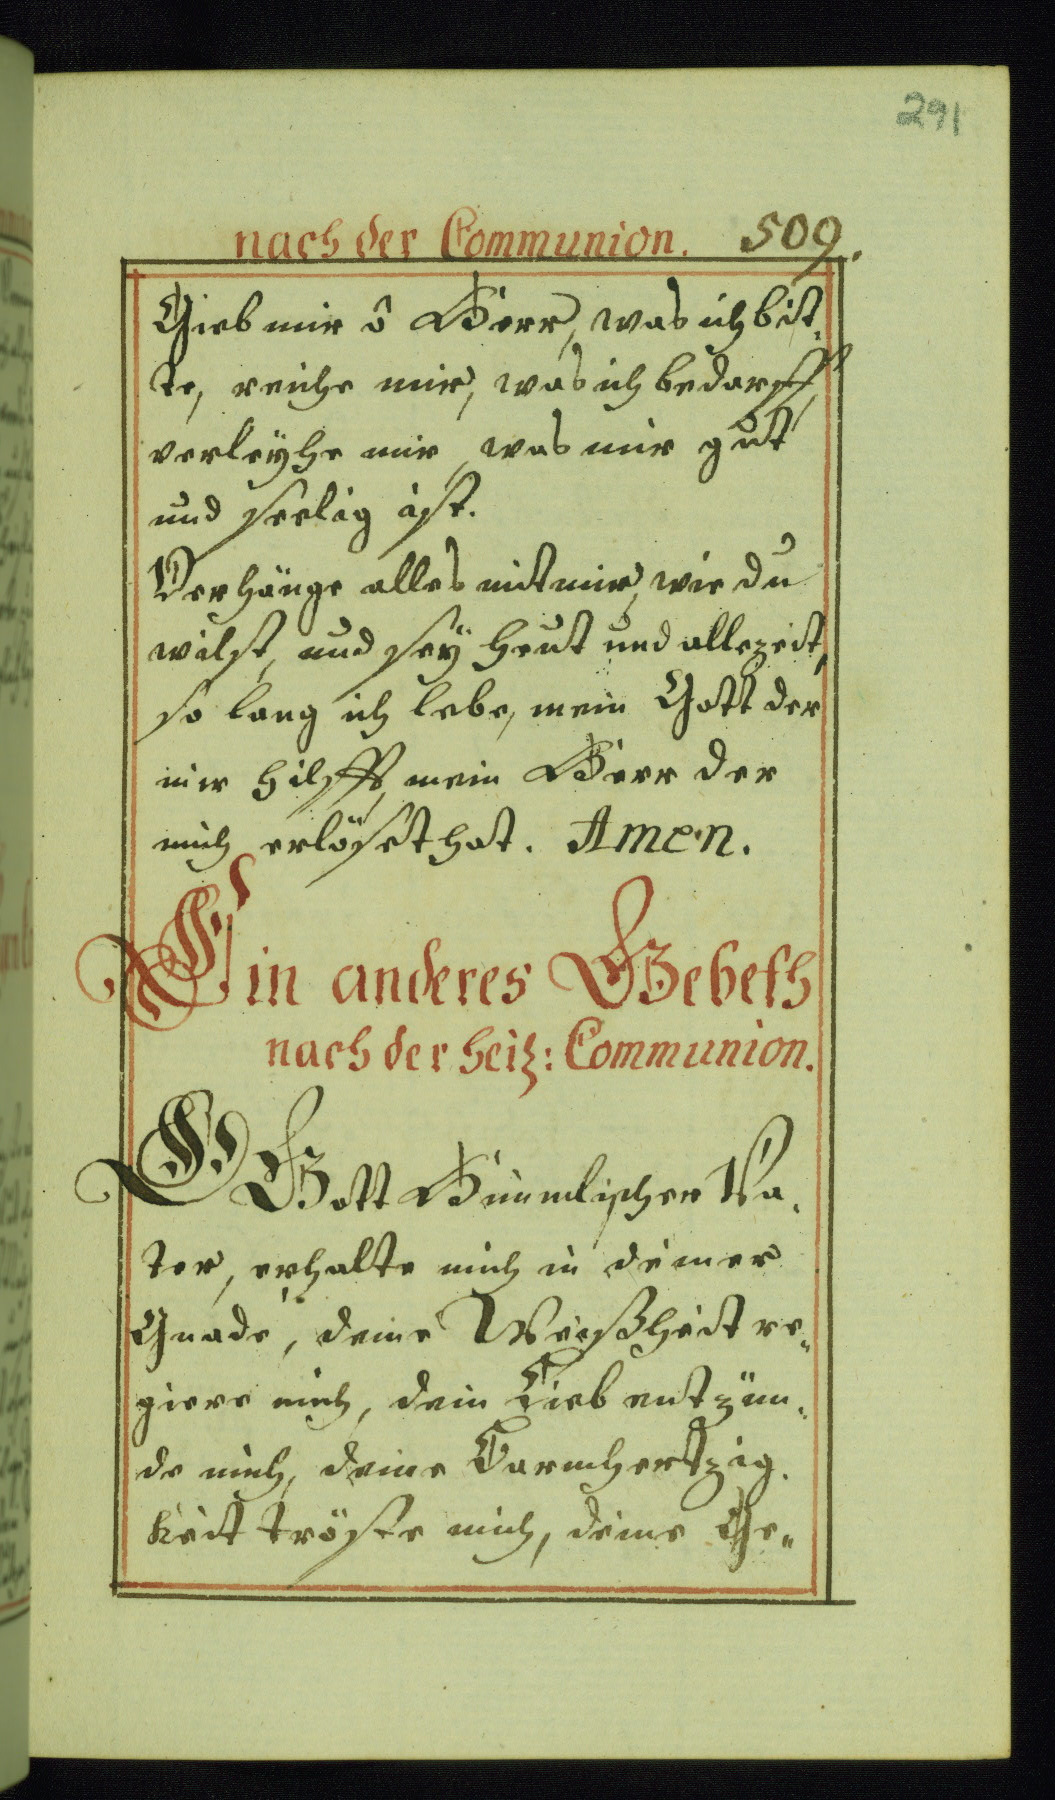 291
nach der Communion. 509.
Gieb mir ô Herr, was ich bit-
te, reiche mir, was ich bedarff,
verleÿhe mir, was mir gut
und seelig ist.
Verhänge alles mit mir, wie du
wilst, und seÿ heut und allezeit,
so lang ich lebe, mein Gott der
mir hilfft, mein Herr der
mich erlöset hat. Amen.
Ein anderes Gebeth
nach der heil: Communion.
O Gott Himmlischer Va-
ter, erhalte mich in deiner
Gnade, deine Weißheit re-
giere mich, dein Lieb entzün-
de mich, deine Barmhertzig-
keit tröste mich, deine Ge-